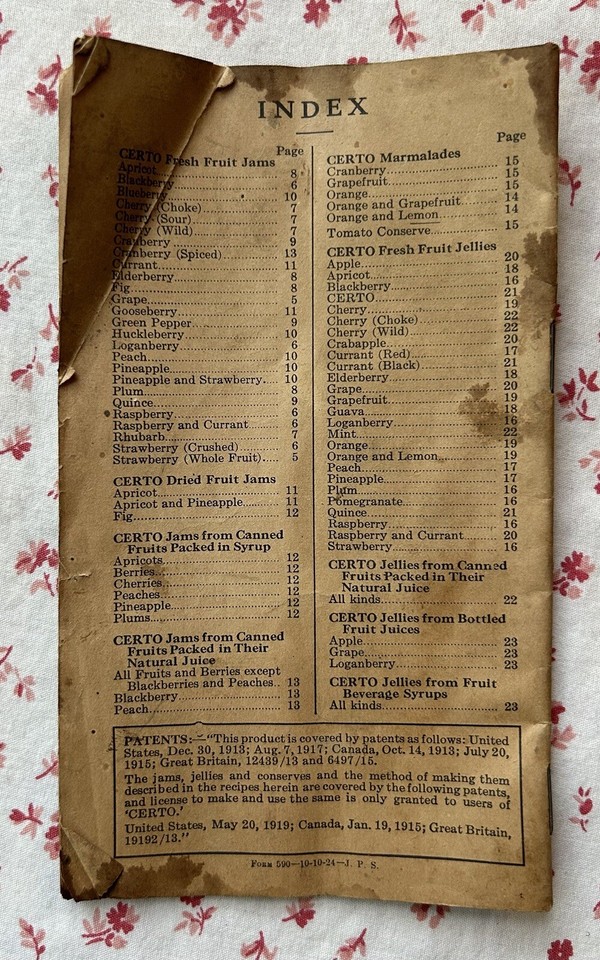 INDEX
Page
CERTO Fresh Fruit Jams
Apricot 8
Blackberry 6
Blueberry 10
Cherry (Choke) 7
Cherry (Sour) 7
Cherry (Wild) 7
Cranberry 9
Cranberry (Spiced) 13
Currant 11
Elderberry 8
Fig 8
Grape 5
Gooseberry 11
Green Pepper 9
Huckleberry 10
Loganberry 6
Peach 10
Pineapple 10
Pineapple and Strawberry 10
Plum 8
Quince 9
Raspberry 6
Raspberry and Currant 6
Rhubarb 7
Strawberry (Crushed) 6
Strawberry (Whole Fruit) 5
CERTO Dried Fruit Jams
Apricot 11
Apricot and Pineapple 11
Fig 12
CERTO Jams from Canned
Fruits Packed in Syrup
Apricots 12
Berries 12
Cherries 12
Peaches 12
Pineapple 12
Plums 12
CERTO Jams from Canned
Fruits Packed in Their
Natural Juice
All Fruits and Berries except
Blackberries and Peaches 13
Blackberry 13
Peach 13
Page
CERTO Marmalades
Cranberry 15
Grapefruit 15
Orange 15
Orange and Grapefruit 14
Orange and Lemon 14
Tomato Conserve 15
CERTO Fresh Fruit Jellies
Apple 20
Apricot 18
Blackberry 16
CERTO 21
Cherry 19
Cherry (Choke) 22
Cherry (Wild) 22
Crabapple 20
Currant (Red) 17
Currant (Black) 21
Elderberry 18
Grape 20
Grapefruit 19
Guava 18
Loganberry 16
Mint 22
Orange 19
Orange and Lemon 19
Peach 17
Pineapple 17
Plum 16
Pomegranate 16
Quince 21
Raspberry 16
Raspberry and Currant 20
Strawberry 16
CERTO Jellies from Canned
Fruits Packed in Their
Natural Juice
All kinds 22
CERTO Jellies from Bottled
Fruit Juices
Apple 23
Grape 23
Loganberry 23
CERTO Jellies from Fruit
Beverage Syrups
All kinds 23
PATENTS:—"This product is covered by patents as follows: United
States, Dec. 30, 1913; Aug. 7, 1917; Canada, Oct. 14, 1913; July 20,
1915; Great Britain, 12439/13 and 6497/15.
The jams, jellies and conserves and the method of making them
described in the recipes herein are covered by the following patents,
and license to make and use the same is only granted to users of
'CERTO.'
United States, May 20, 1919; Canada, Jan. 19, 1915; Great Britain,
19192/13."
Form 590—10-10-24—J. P. S.